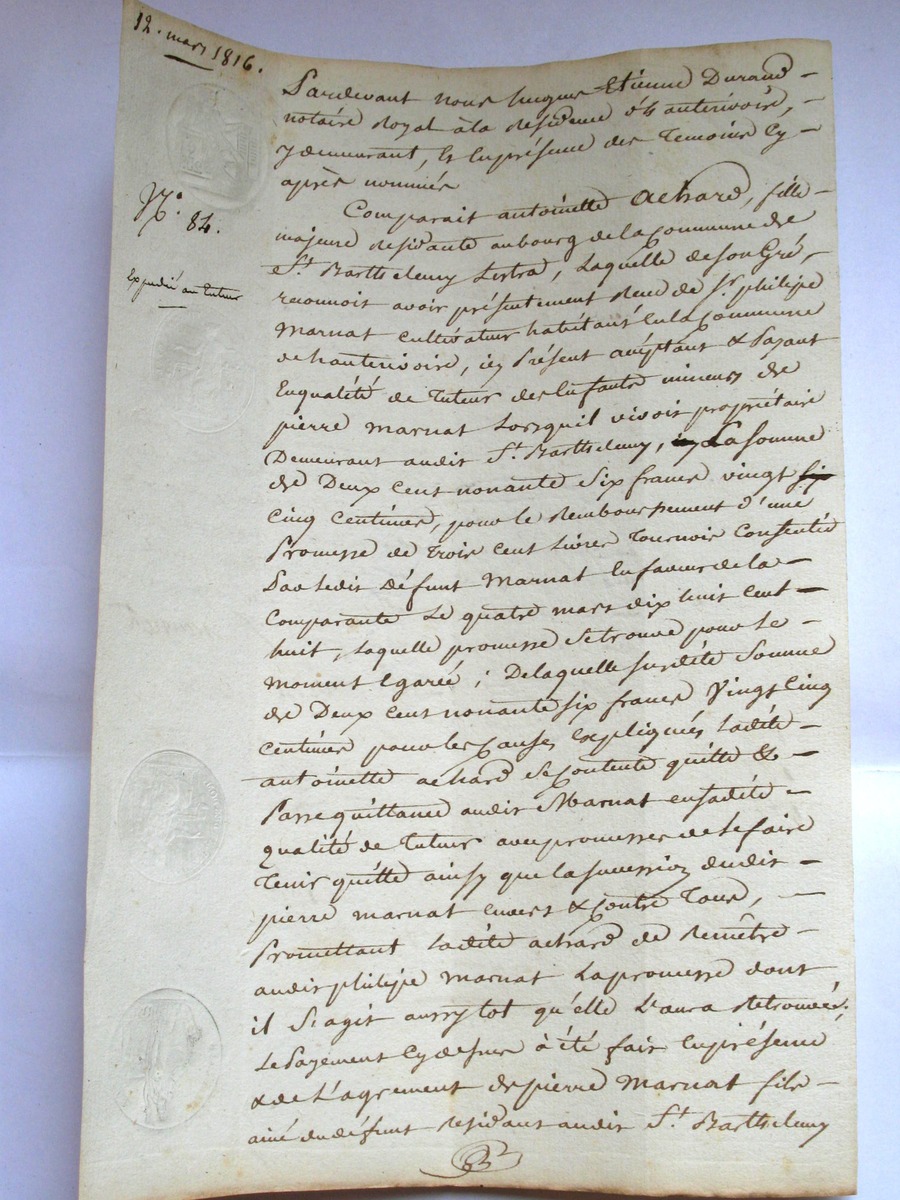 12. mars 1816.
Pardevant nous hugues Etienne Durand
notaire Royal à la Residence d'hauterivoire,
y demeurant, & En présence des Temoins Cy
après nommés
N.° 84.
Comparait antoinette achard, fille
majeure residante au bourg de la Commune de
St. Barthelemy Lestra, Laquelle de son Gré,
Expedié au tuteur
reconnoit avoir présentement Reçu de Sr. philipe
Marnat cultivateur habitant En la Commune
de hauterivoire, icy Présent acceptant & Payant
En qualité de Tuteur des Enfants mineurs de
pierre marnat Lorsquil vivoit propriétaire
Demeurant audit St. Barthelemy, La Somme
de Deux Cent nonante Six francs vingt six
Cinq Centimes, pour le Remboursement d'une
Promesse de Trois Cent Livres Tournois Consentie
Par Ledit Défunt Marnat En faveur de la
Comparante Le quatre mars dix huit Cent
huit, Laquelle promesse se trouve pour le
moment Egarée ; De laquelle susdite Somme
de Deux Cent nonante six francs Vingt Cinq
Centimes pour les Causes Expliquées Ladite
antoinette achard se Contente quitte &
Passe quittance audit Marnat en sadite
qualité de Tuteur avec promesses de le faire
Tenir quitte ainsy que la succession dudit
pierre marnat Envers & Contre Tous,
Promettant Ladite achard de Remêtre
audit philipe Marnat La promesse dont
il S'agit aussytot qu'elle L'aura Retrouvée ;
Le Payement Cy dessus à été fait En présence
& de L'agrement de pierre Marnat fils
ainé du défunt residant audit St. Barthelemy